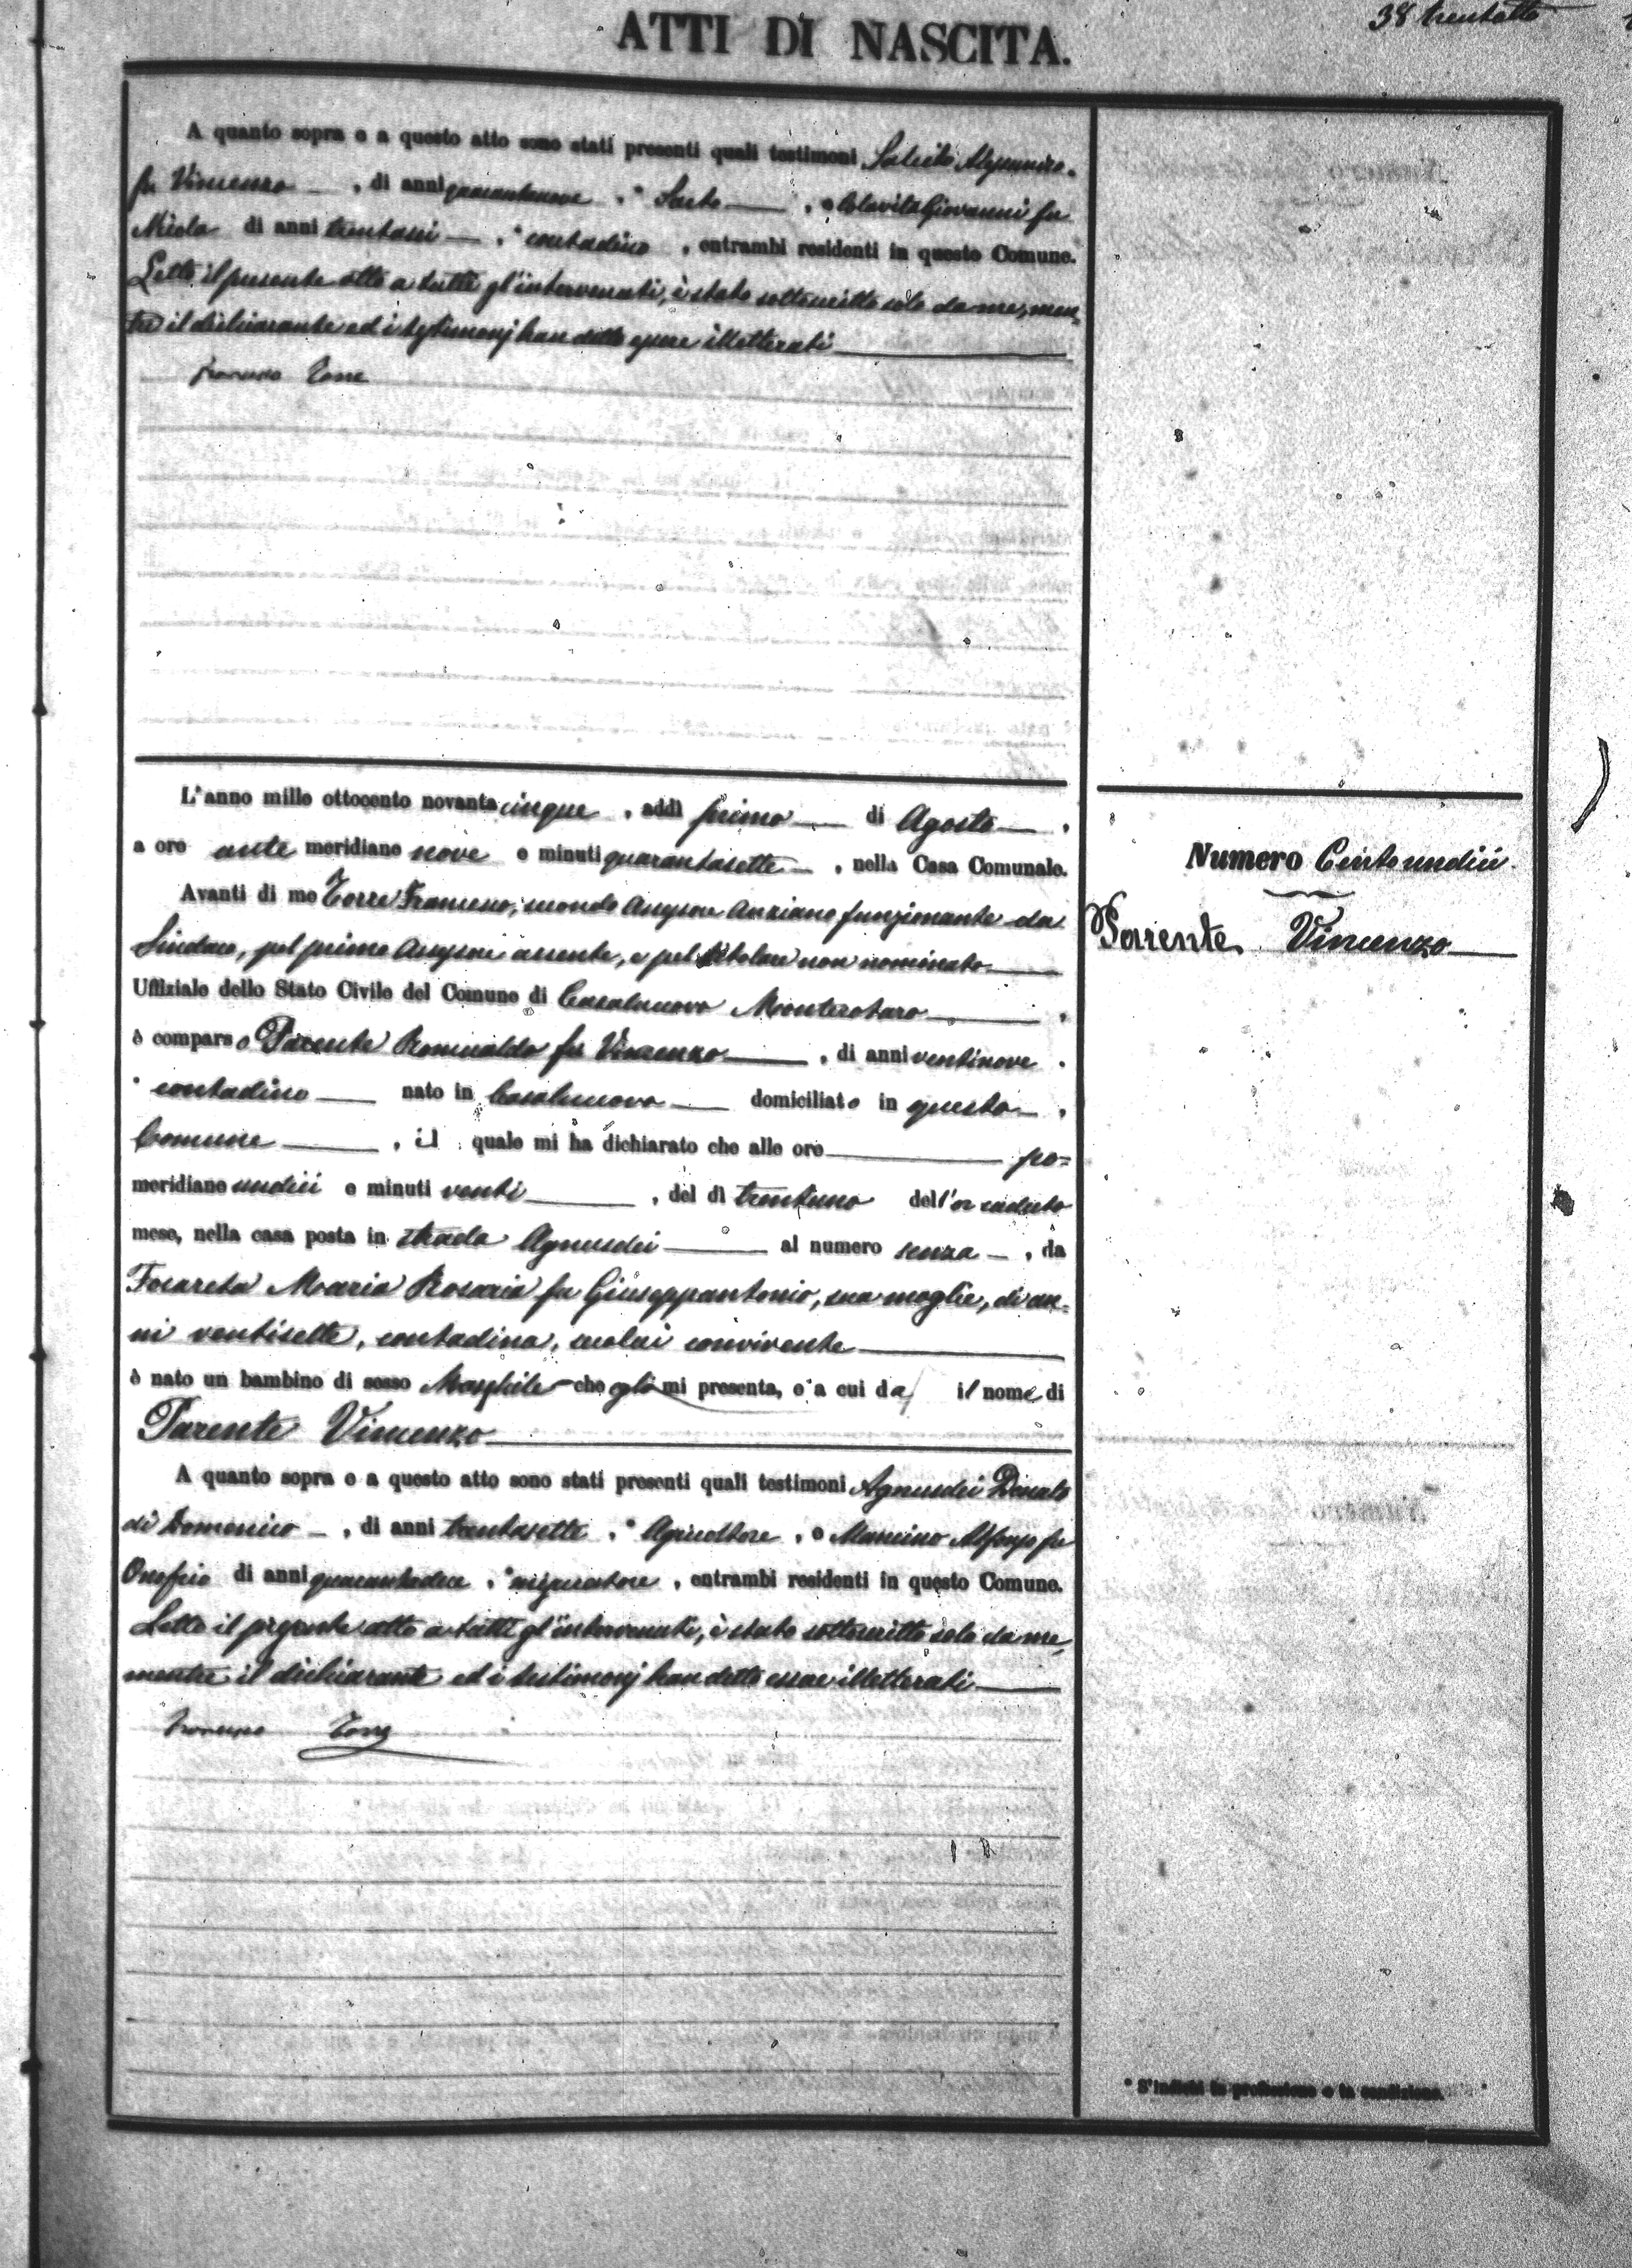 38 trentotto
ATTI DI NASCITA.
A quanto sopra e a questo atto sono stati presenti quali testimoni
fu Vincenzo , di anni quarantanove , * Sarto , e Colavita Giovanni fu
Nicola di anni trentasei , * contadino , entrambi residenti in questo Comune.
Letto il presente atto a tutti gl'intervenuti, è stato sottoscritto solo da me, men=
tre il dichiarante ed i testimonj han detto essere illetterati
Francesco Torre
L'anno mille ottocento novantacinque , addì primo di Agosto ,
a ore ante meridiane nove e minuti quarantasette , nella Casa Comunale.
Avanti di me Torre Francesco, secondo Assessore Anziano funzionante da
Sindaco, pel primo Assessore assente, e pel titolare non nominato
Uffiziale dello Stato Civile del Comune di Casalnuovo Monterotaro ,
è comparso Parente Romualdo fu Vincenzo , di anni ventinove .
* contadino nato in Casalnuovo domiciliato in questo ,
Comune , il quale mi ha dichiarato che alle ore po=
meridiane undici e minuti venti , del dì trentuno dell'or caduto
mese, nella casa posta in strada Agnusdei al numero senza , da
Focareta Maria Rosaria fu Giuseppantonio, sua moglie, di an=
ni ventisette, contadina, secolui convivente
è nato un bambino di sesso Maschile che egli mi presenta, e a cui da il nome di
Parente Vincenzo
A quanto sopra e a questo atto sono stati presenti quali testimoni Agnusdei Donato
di Domenico , di anni trentasette , * Agricoltore , e Mancino Alfonso fu
Onofrio di anni , * , entrambi residenti in questo Comune.
Letto il presente atto a tutti gl'intervenuti, è stato sottoscritto solo da me,
mentre il dichiarante ed i testimonj han detto essere illetterati
Francesco Torre
Numero Centoundici.
Parente Vincenzo
* S'indichi la professione o la condizione.